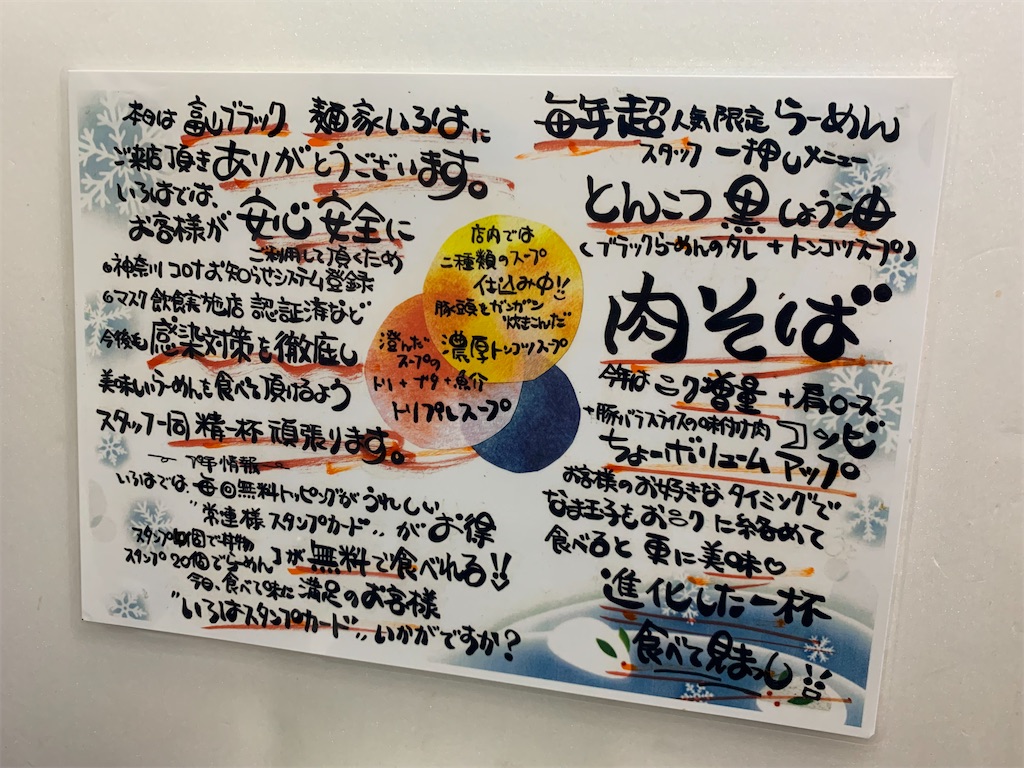 本日は 富山ブラック 麺家いろはに
ご来店頂き ありがとうございます。
いろはでは、
お客様が 安心安全に
ご利用して頂くため
神奈川コロナお知らせシステム登録
マスク飲食実施店 認証済など
今後も 感染対策を徹底し
美味しいらーめんを食べて頂けるよう
スタッフ一同 精一杯 頑張ります。
プチ情報
いろはでは、毎回無料トッピングがうれしい
"常連様スタンプカード" がお得
スタンプ10個で丼物
スタンプ20個でらーめん】が 無料で食べれる!!
今日、食べて味に 満足のお客様
"いろはスタンプカード" いかがですか?
店内では
二種類のスープ
仕込み中!!
豚頭をガンガン
炊きこんだ
濃厚トンコツスープ
澄んだ
スープの
トリ+ブタ+魚介
トリプルスープ
毎年超人気限定らーめん
スタッフ 一押しメニュー
とんこつ 黒しょう油
(ブラックらーめんのタレ+トンコツスープ)
肉そば
今年は ニク増量 +肩ロース
+豚バラスライスの味付け肉 コンビ
ちょーボリュームアップ
お客様のお好きなタイミングで
なま玉子もおニクに絡めて
食べると 更に美味♡
進化した一杯
食べて見まっし!!